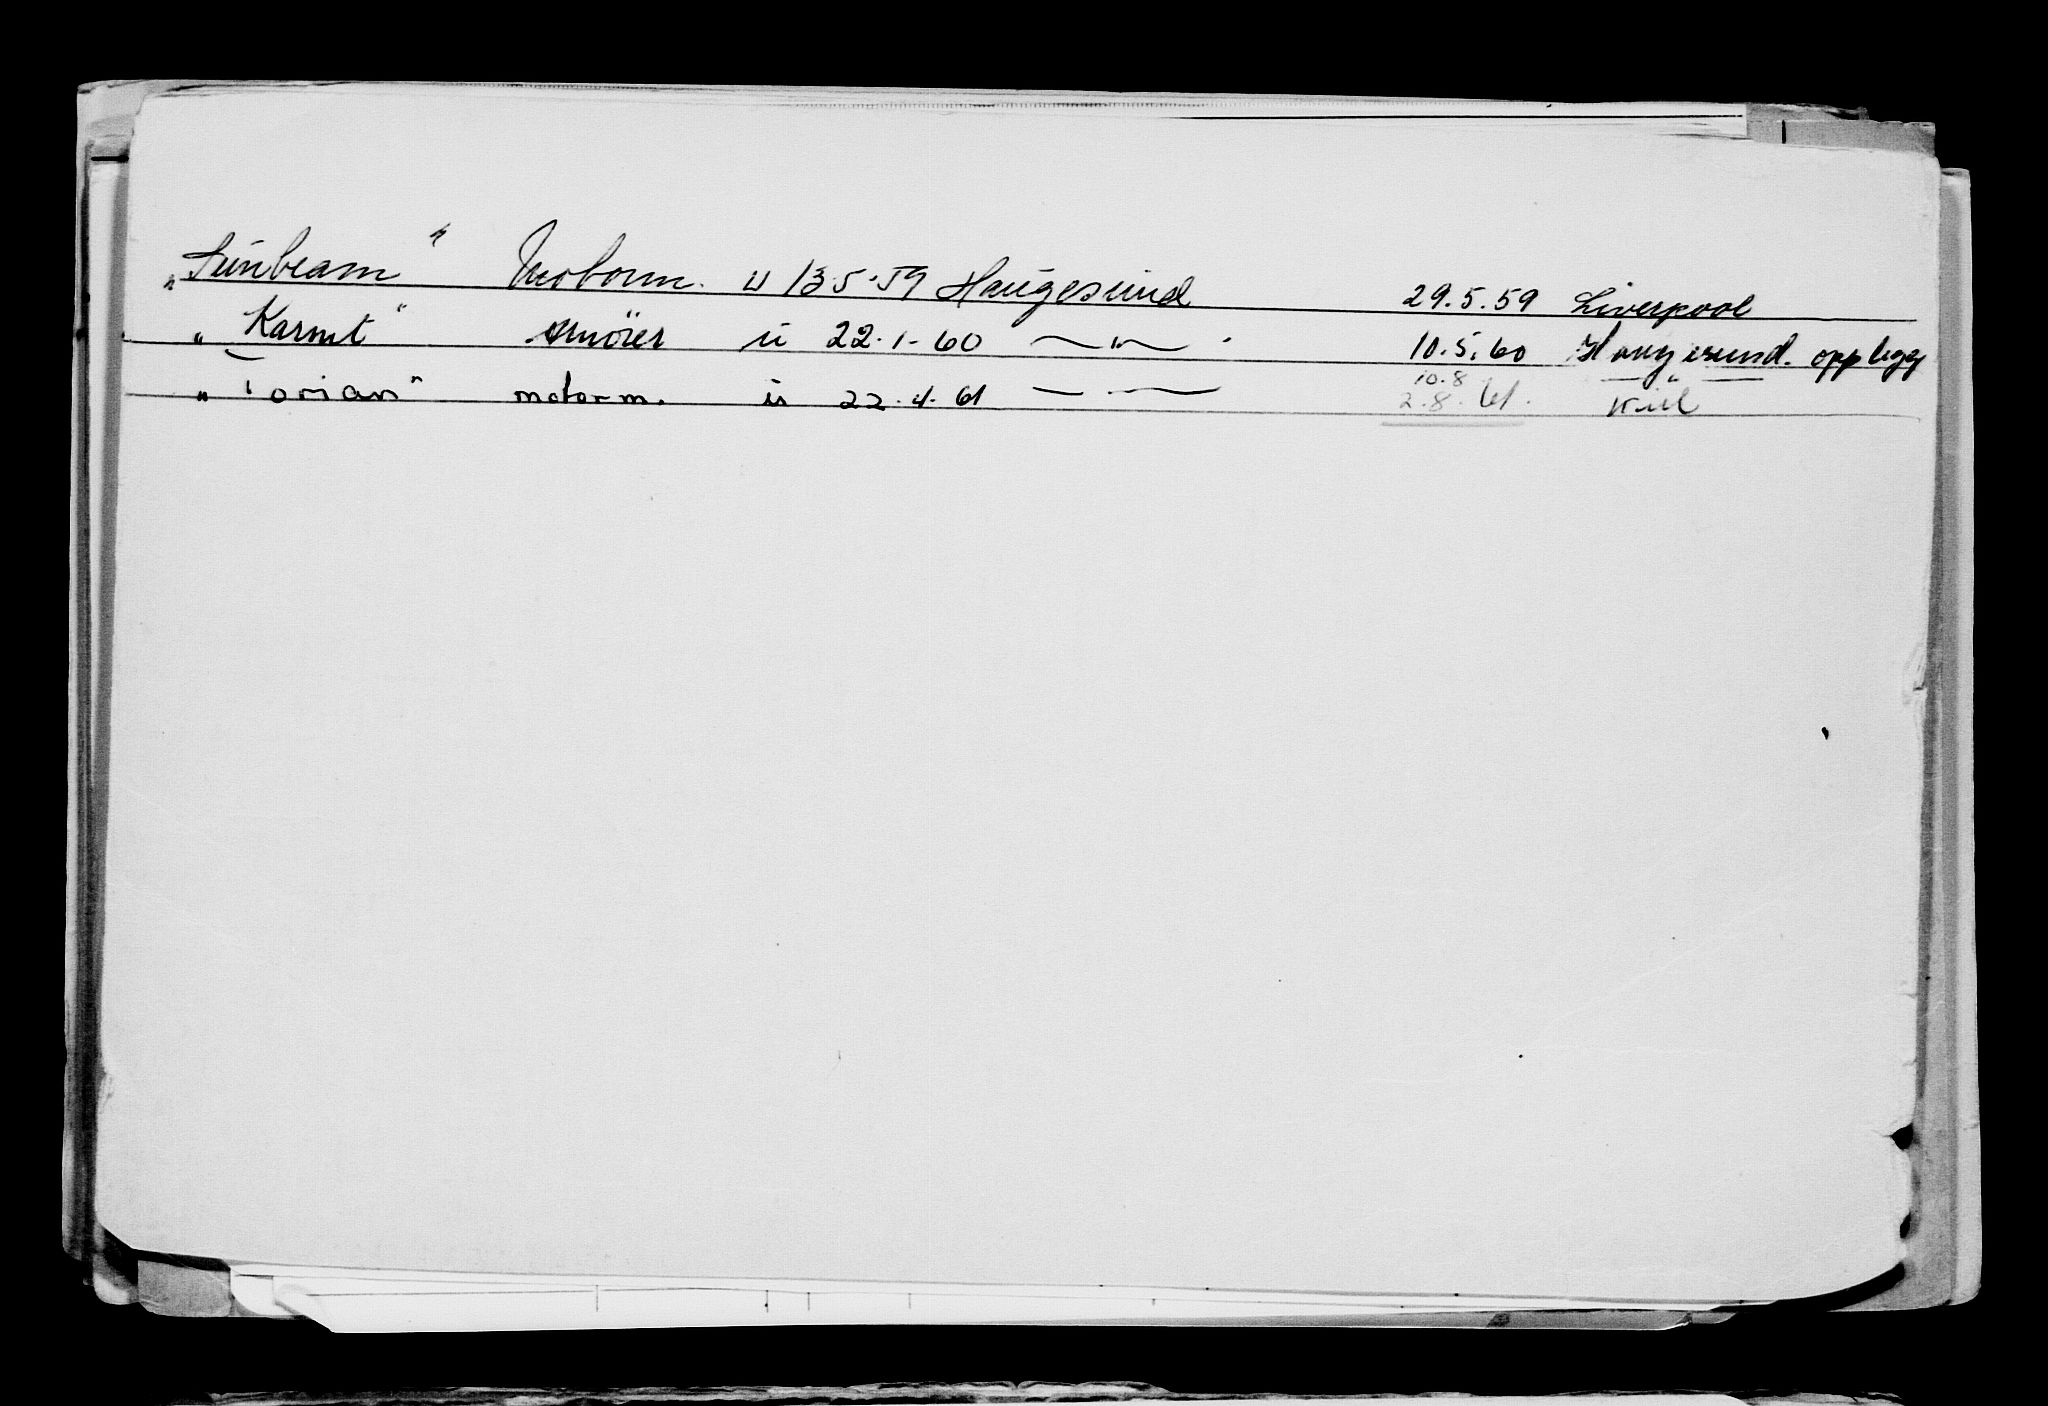 „Sunbeam" Motorm. u 13.5.59 Haugesund 29.5.59 Liverpool
„Karmt" smører u 22.1.60 —"— . 10.5.60 Haugesund. opplegg
„Torian" motorm. u 22.4.61 — — 10.8 —"—
2.8.61. Kiel